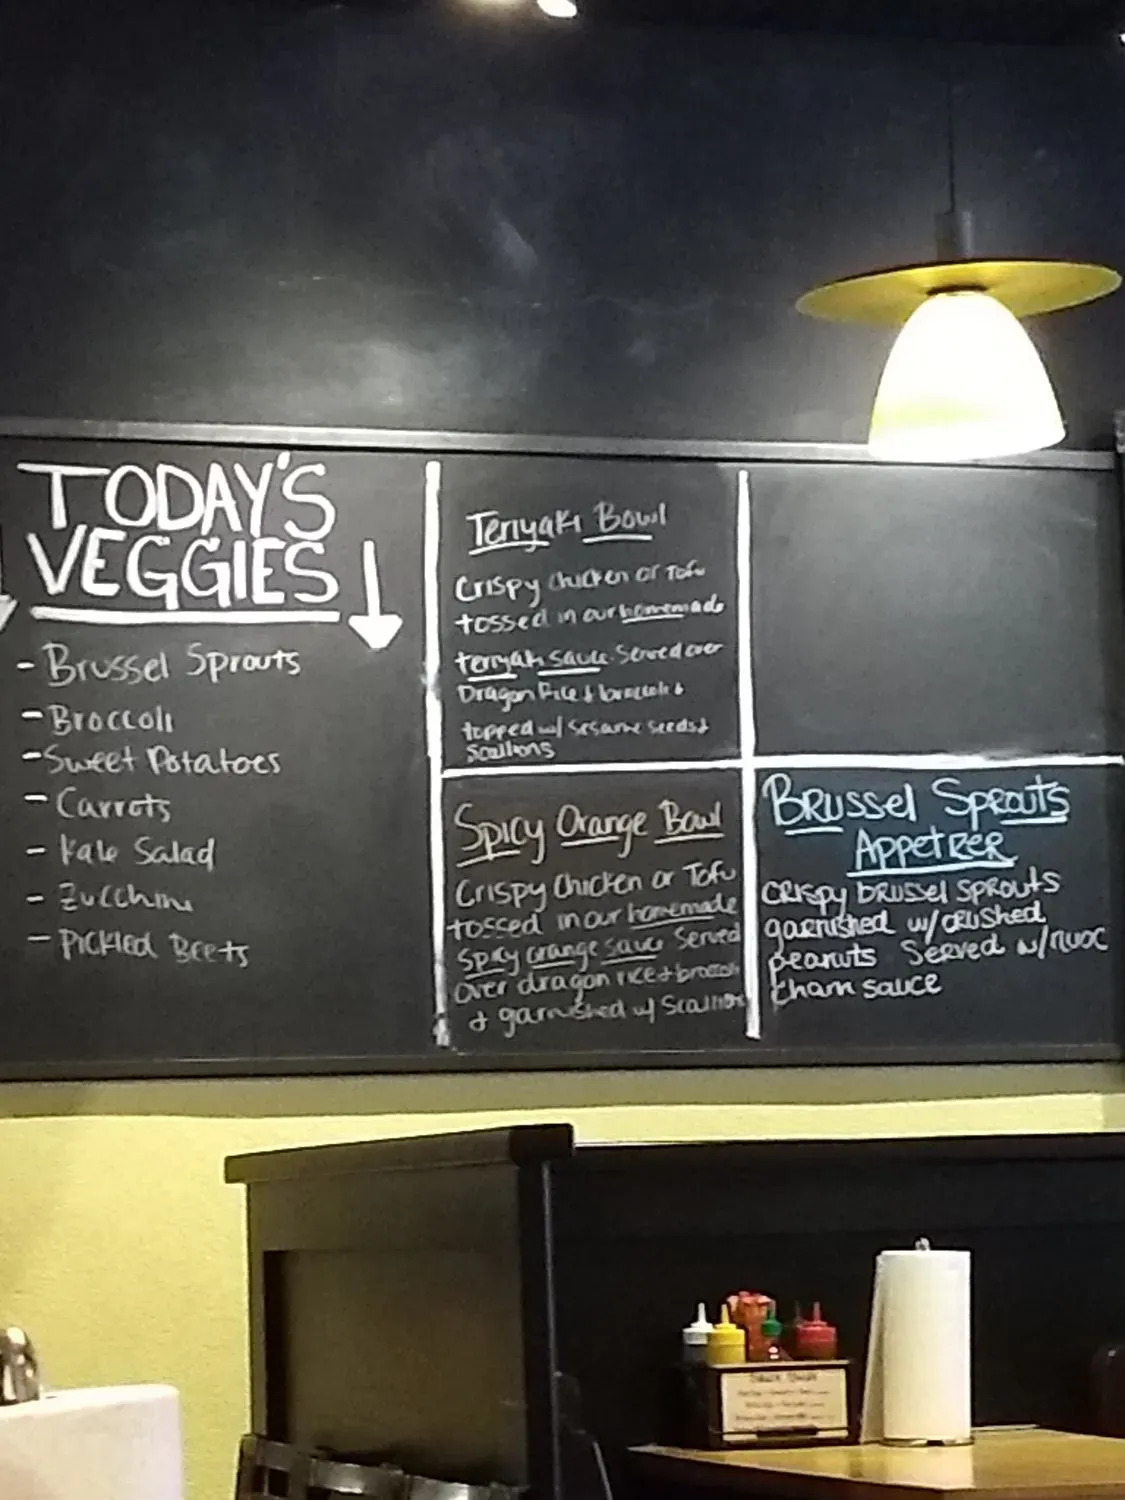 TODAY'S
VEGGIES
- Brussel Sprouts
- Broccoli
- Sweet Potatoes
- Carrots
- Kale Salad
- Zucchini
- Pickled Beets
Teriyaki Bowl
Crispy chicken or Tofu
tossed in our homemade
teriyaki sauce. Served over
Dragon Rice & broccoli &
topped w/ sesame seeds &
Scallions
Spicy Orange Bowl
Crispy Chicken or Tofu
tossed in our homemade
spicy orange sauce Served
over dragon rice & broccoli
& garnished w/ Scallions
Brussel Sprouts
Appetizer
Crispy brussel sprouts
garnished w/ crushed
peanuts Served w/ nuoc
cham sauce